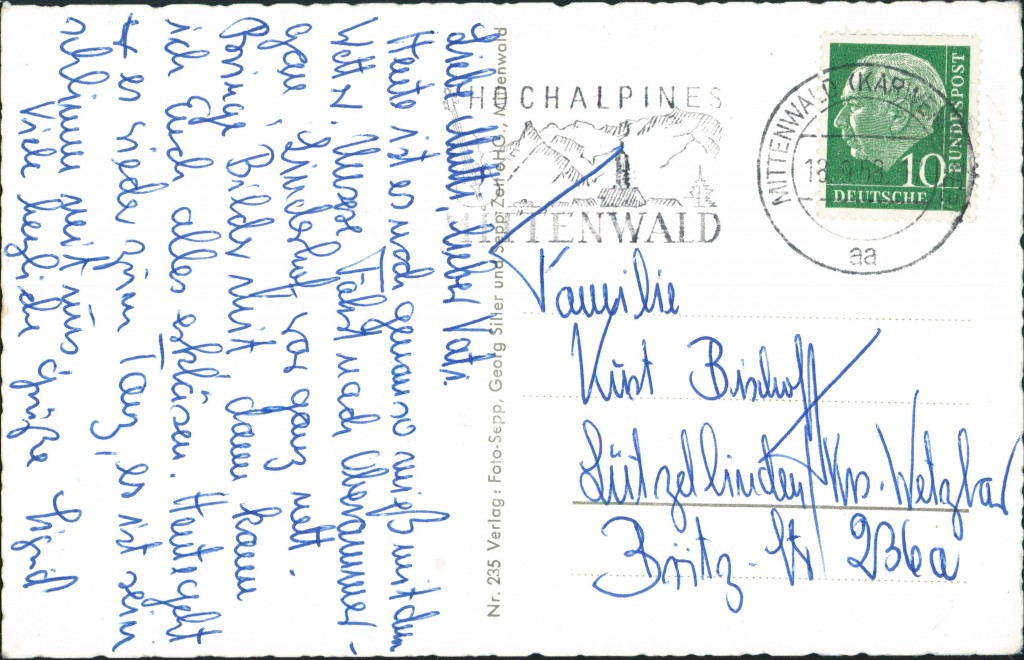 Liebe Mutti, lieber Vati.
Heute ist es noch genauso mieß mit dem
Wetter. Unsere Fahrt nach Oberammer-
gau, Linderhof war ganz nett.
Bringe Bilder mit dann kann
ich Euch alles erklären. Heute geht
es wieder zum Tanz, es ist sein
schlimm mit uns.
Viele herzliche Grüße Sigrid
Nr. 235 Verlag: Foto-Sepp, Georg Siller und Sepp Zeit OHG., Mittenwald
HOCHALPINES
MITTENWALD
MITTENWALD (KARW
aa
10
DEUTSCHE
BUNDESPOST
Familie
Kurt Bischoff
Lützellinden Krs. Wetzlar
Britz. Str 236a